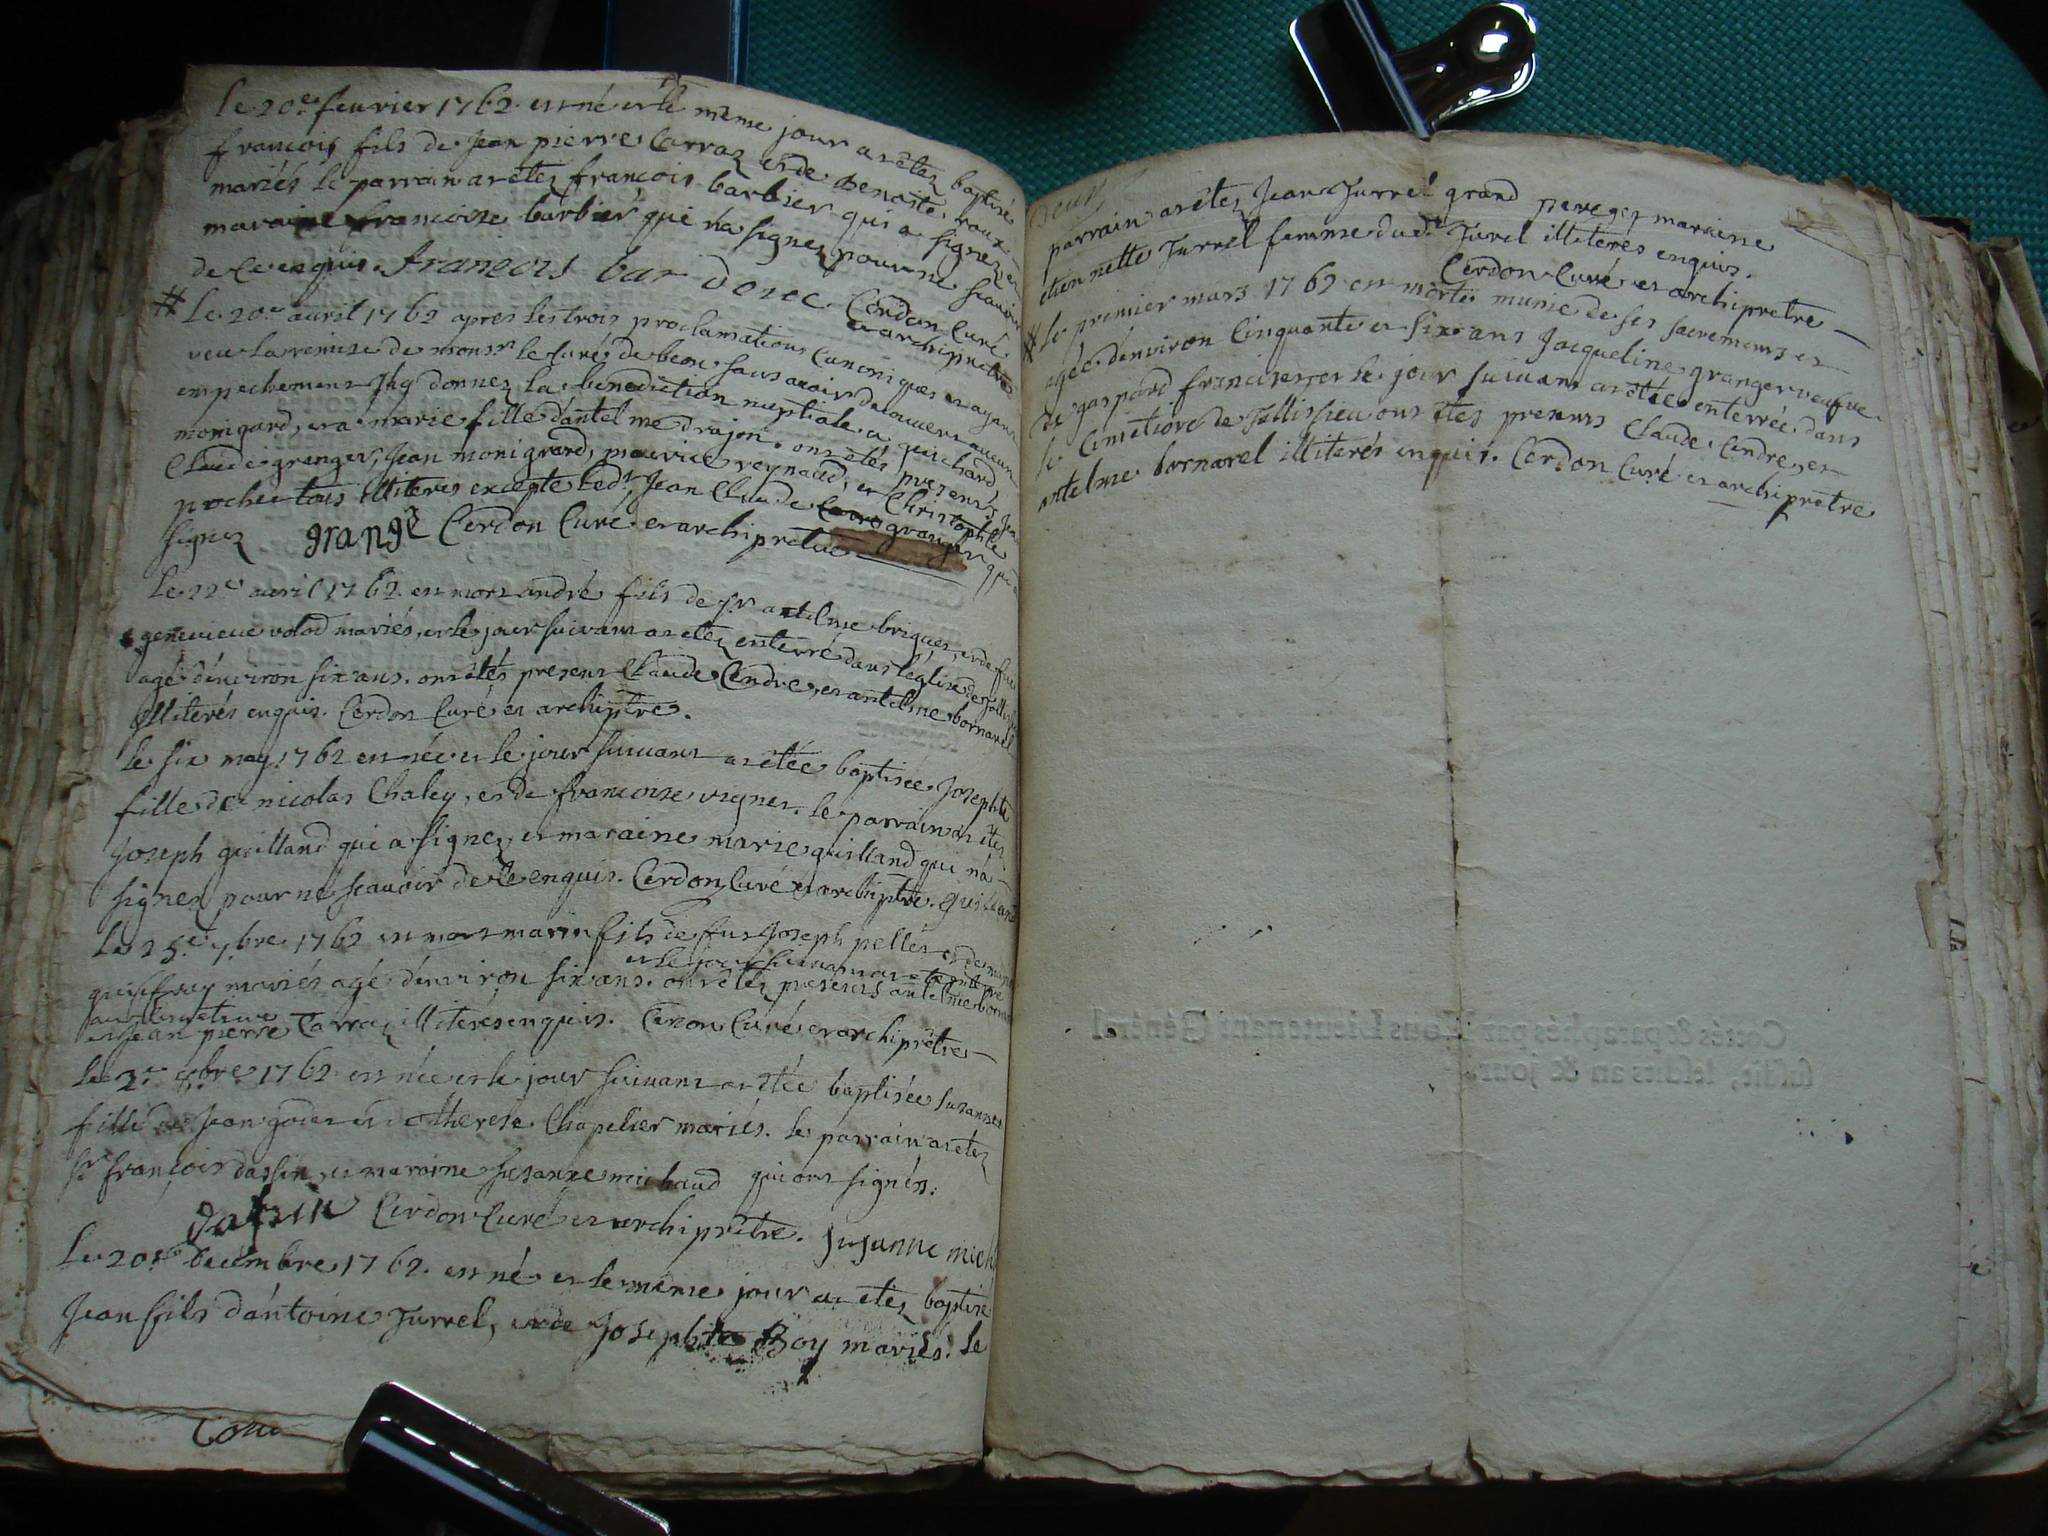 le 20e feurier 1762 est né et le meme jour a etez baptisé
francois fils de Jean pierre Carraz et de Benoite roux
mariés le parrain a etez francois barbier qui a signez et
maraine francoise barbier qui na signez pour ne scavoir
de ce enquis. francois bar
Cerdon Curé
et archipretre
# Le 20e auril 1762 apres les trois proclamations Canoniques et ayant
veu la remise de monsr le Curé de beon sans avoir decouvert aucun
empechement Jay donnez la benediction nuptiale a
monigard, et a marie fille dantelme drajon. ont étés presents
Claude granger, Jean monigrard, maurice reynaud, et Christophle
pochet tous illiteres excepté ledt Jean Claude granger qui a
signez grange Cerdon Curé et archipretre
Le 22e auril 1762 est mort andré fils de sr antelme briguet, et de
genevieve volod mariés, et le jour suivant a etez enterré dans leglise de
agé denviron six ans. ont étés present Claude Cendre, et antelme bornarel
illiterés enquis. Cerdon Curé et archiptre.
le six may 1762 est née et le jour suivant a etée baptisée Josephte
fille de nicolas Chaley, et de francoise vignet. le parrain a etez
Joseph guilland qui a signez et maraine marie guilland qui na
signez pour ne scauoir de ce enquis. Cerdon Curé et archiptre. guilland
Le 25e 7bre 1762 est mort marin fils de fut Joseph pellet et de
et le jour suivant a
mariés agé denviron six ans. ont étez presents antelme
au cimetiere
et Jean pierre Carraz illiteres enquis. Cerdon Curé et archipretre
Le 8bre 1762 est née et le jour suivant a etée baptisée Susanne
fille de Jean et therese Chapelier mariés. le parrain a etez
sr francois dassin, et maraine Susanne michaud qui ont signés.
dassin Cerdon Curé et archiprétre. Susanne mich
Le 20e Decembre 1762. est né et le meme jour a etez baptisé
Jean fils dantoine Jurrel, et de Josephte Boy mariés. le
parrain a etez Jean Jurrel grand pere et maraine
etiennette Jurrel femme dudt Jurel illiterés enquis.
Cerdon Curé et archipretre
# Le premier mars 1762 est morte munie de ses sacrements et
agée denviron Cinquante et six ans Jacqueline granger veufve
de gaspard et le jour suivant a etée enterrée dans
le Cimetiere de Tallissieu ont étes presents Claude Cendre, et
antelme bornarel illiterés enquis. Cerdon Curé et archipretre
Cottés & paraphés par Nous Lieutenant Général
susdit, lesdits an & jour.